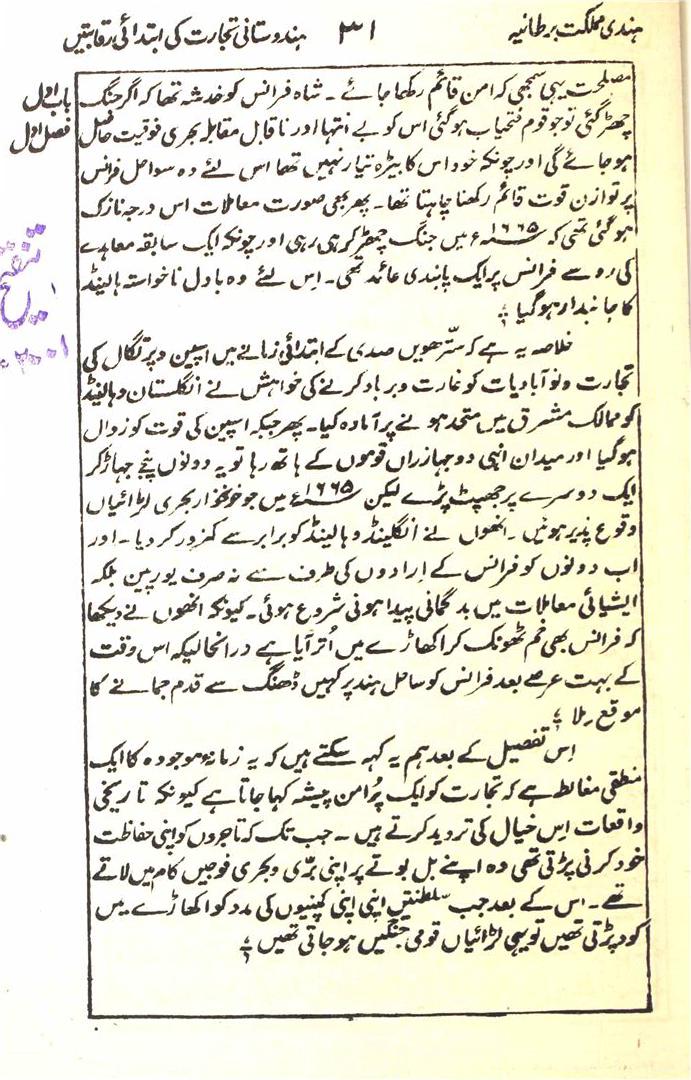 ہندی مملکت برطانیہ ۳۱ ہندوستانی تجارت کی ابتدائی رقابتیں
باب اول
فصل اول
مصلحت یہی سمجھی کہ امن قائم رکھا جائے ۔ شاہ فرانس کو خدشہ تھا کہ اگر جنگ
چھڑ گئی تو جو قوم فتحیاب ہو گئی اس کو بے انتہا اور ناقابل مقابلہ بحری فوقیت حاصل
ہو جائے گی اور چونکہ خود اس کا بیڑہ تیار نہیں تھا اس لئے وہ سواحل فرانس
پر توازن قوت قائم رکھنا چاہتا تھا ۔ پھر بھی صورت معاملات اس درجہ نازک
ہو گئی تھی کہ ۱۶۶۵ء میں جنگ چھڑ کر ہی رہی اور چونکہ ایک سابقہ معاہدے
کی رو سے فرانس پر ایک پابندی عائد تھی ۔ اس لئے وہ بادل ناخواستہ ہالینڈ
کا جانبدار ہو گیا ؛
خلاصہ یہ ہے کہ سترھویں صدی کے ابتدائی زمانے میں اسپین و پرتگال کی
تجارت و نو آبادیات کو غارت و برباد کرنے کی خواہش نے انگلستان و ہالینڈ
کو ممالک مشرق میں متحد ہونے پر آمادہ کیا ۔ پھر جبکہ اسپین کی قوت کو زوال
ہو گیا اور میدان انہی دو جہازراں قوموں کے ہاتھ رہا تو یہ دونوں پنجے جھاڑ کر
ایک دوسرے پر جھپٹ پڑے لیکن ۱۶۶۵ء میں جو خونخوار بحری لڑائیاں
وقوع پذیر ہوئیں ۔ انھوں نے انگلینڈ و ہالینڈ کو برابر سے کمزور کر دیا ۔ اور
اب دونوں کو فرانس کے ارادوں کی طرف سے نہ صرف یورپین بلکہ
ایشیائی معاملات میں بدگمانی پیدا ہونی شروع ہوئی ۔ کیونکہ انھوں نے دیکھا
کہ فرانس بھی خم ٹھونک کر اکھاڑے میں اُتر آیا ہے درانحالیکہ اس وقت
کے بہت عرصے بعد فرانس کو ساحل ہند پر کہیں ڈھنگ سے قدم جمانے کا
موقع ملا ؛
اس تفصیل کے بعد ہم یہ کہہ سکتے ہیں کہ یہ زمانۂ موجودہ کا ایک
منطقی مغالطہ ہے کہ تجارت کو ایک پُرامن پیشہ کہا جاتا ہے کیونکہ تاریخی
واقعات اس خیال کی تردید کرتے ہیں ۔ جب تک کہ تاجروں کو اپنی حفاظت
خود کرنی پڑتی تھی وہ اپنے بل بوتے پر اپنی برّی و بحری فوجیں کام میں لاتے
تھے ۔ اس کے بعد جب سلطنتیں اپنی اپنی کمپنیوں کی مدد کو اکھاڑے میں
کود پڑتی تھیں تو یہی لڑائیاں قومی جنگیں ہو جاتی تھیں ؛